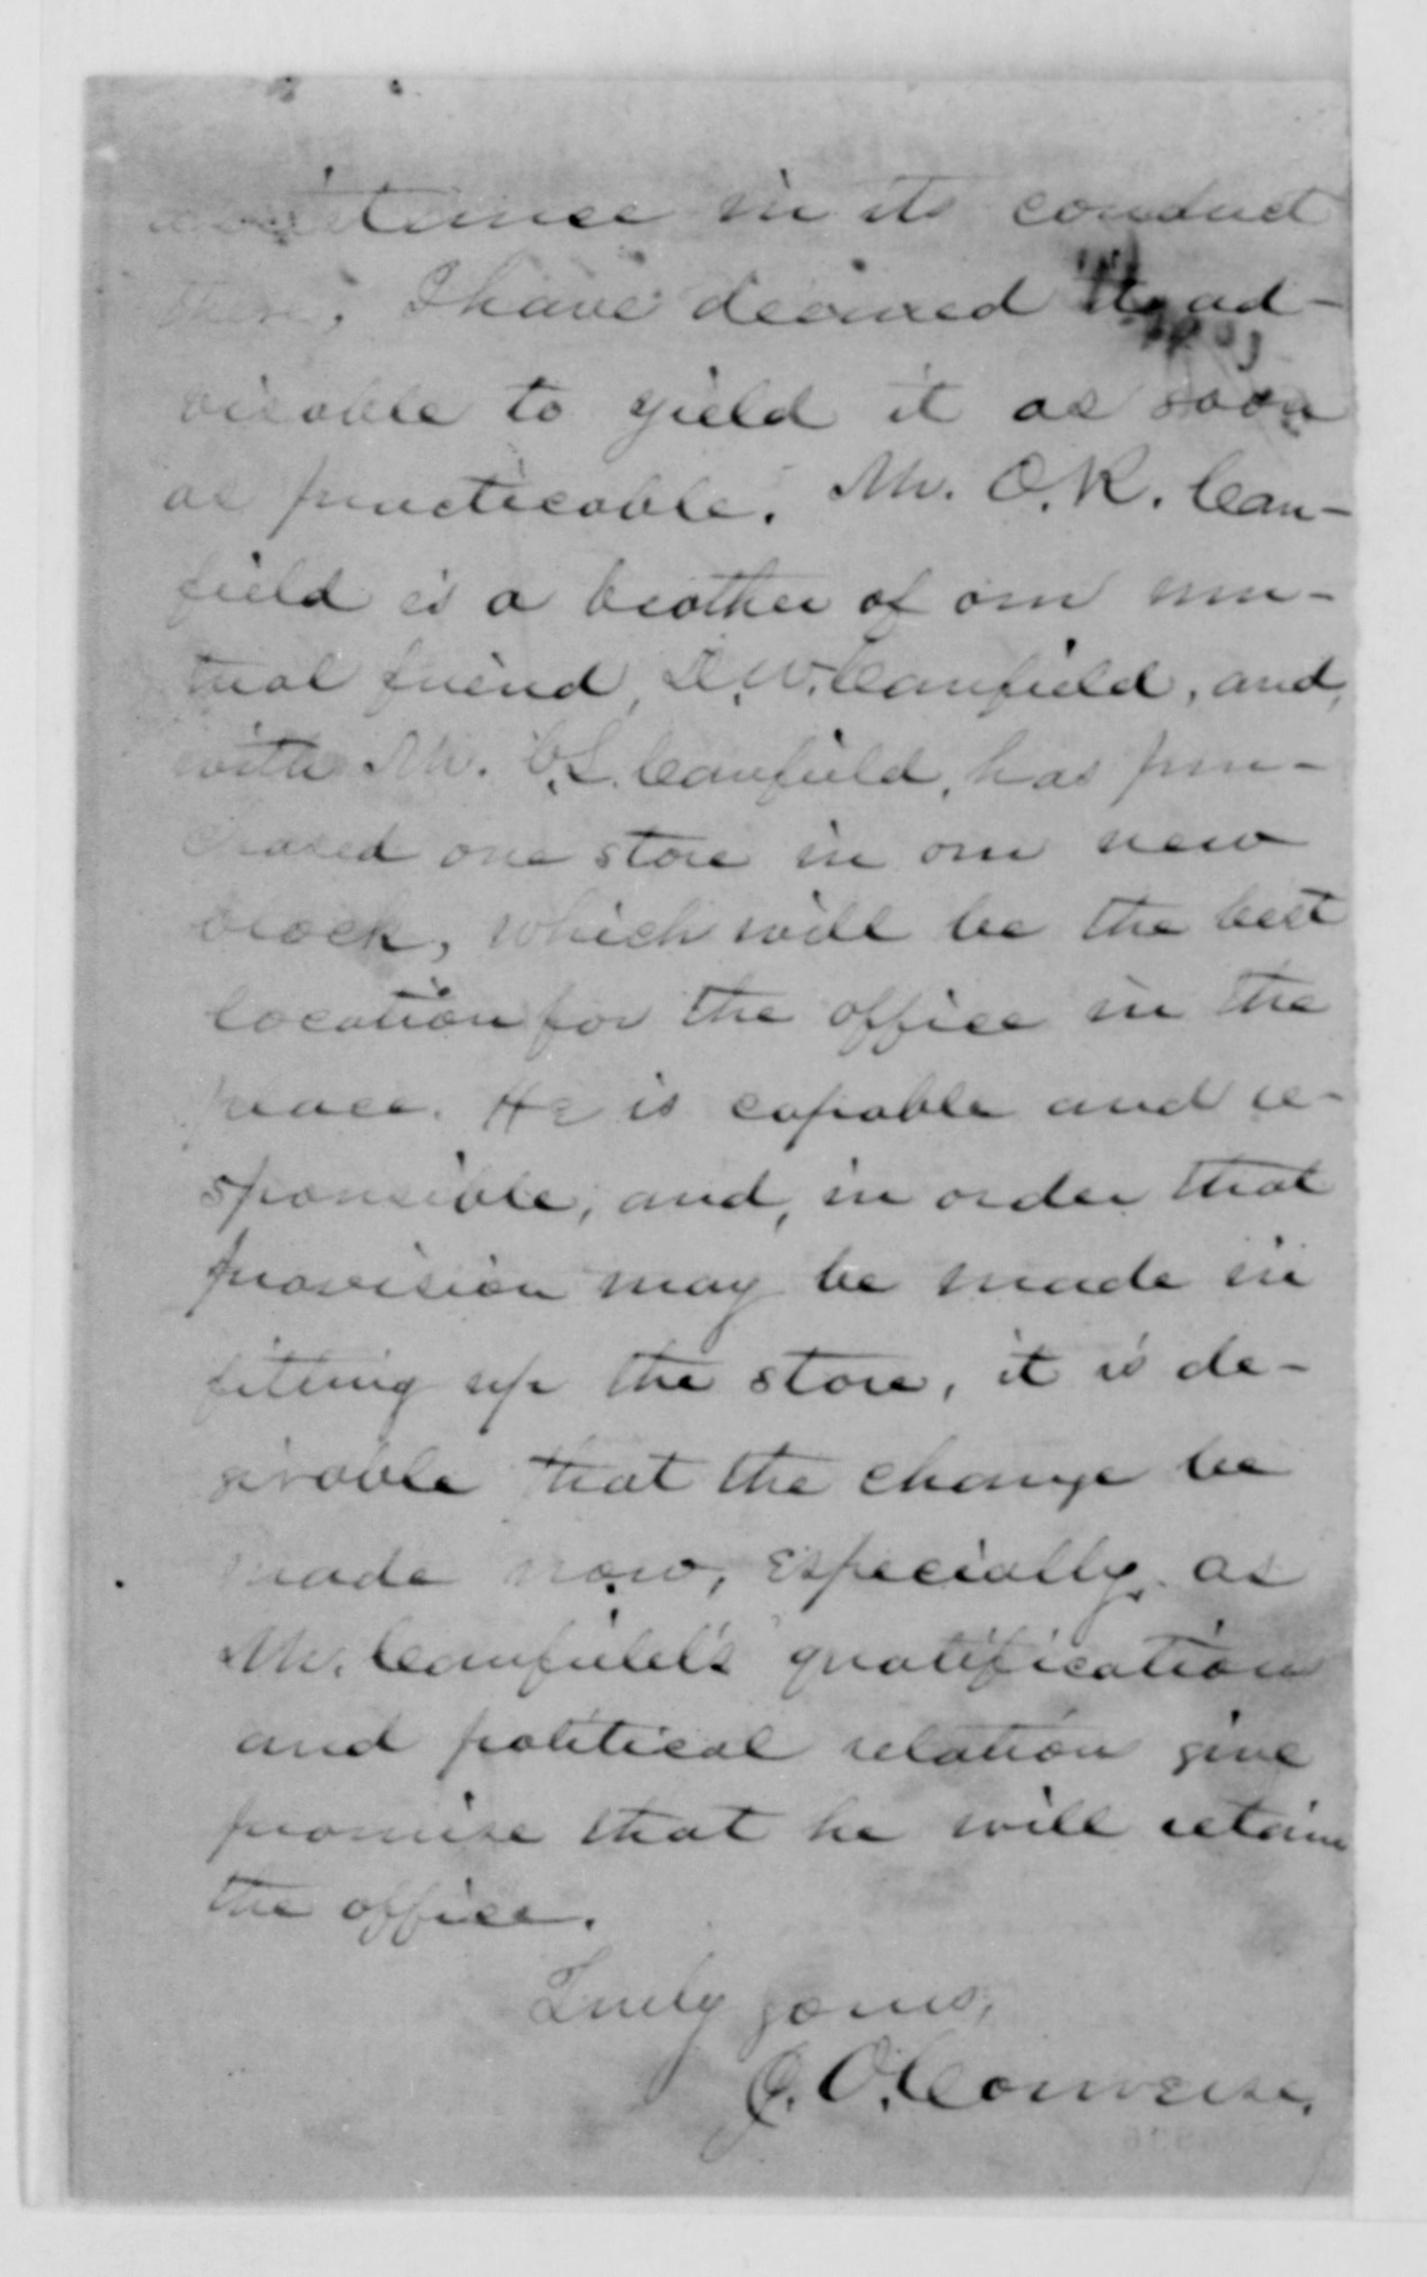 assistance in its conduct
there, I have deemed it ad-
visable to yield it as soon
as practicable. Mr. O.K. Can-
field is a brother of our mu-
tual friend, D.W. Canfield, and,
with Mr. C.S. Canfield, has pur-
chased one store in our new
block, which will be the best
location for the office in the
place. He is capable and re-
sponsible, and, in order that
provision may be made in
fitting up the store, it is de-
sirable that the change be
made now, especially as
Mr. Canfield's qualification
and political relation give
promise that he will retain
the office.
Truly yours,
J.O. Converse.